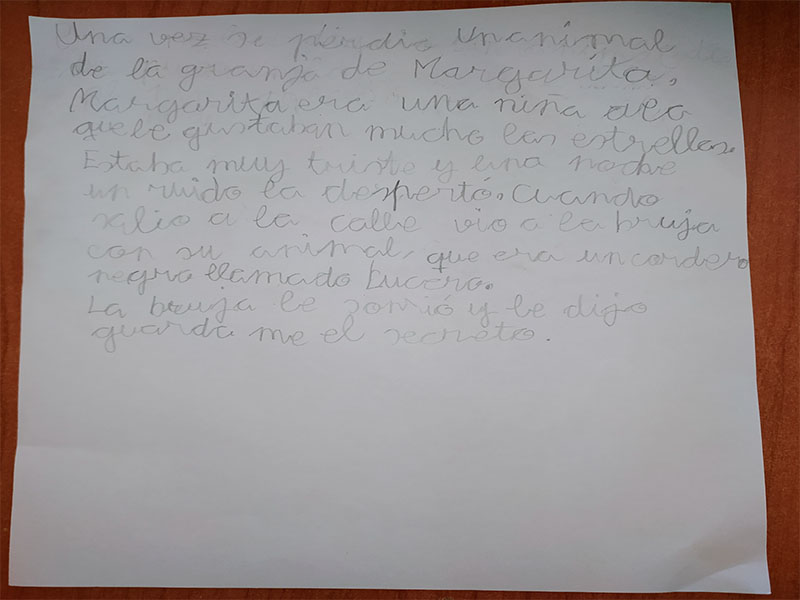 Una vez se perdio un animal
de la granja de Margarita,
Margarita era una niña
que le gustaban mucho las estrellas.
Estaba muy triste y una noche
un ruido la desperto. Cuando
salio a la calle vio a la bruja
con su animal, que era un cordero
negro llamado Lucero.
La bruja le sonrió y le dijo
guarda me el secreto.